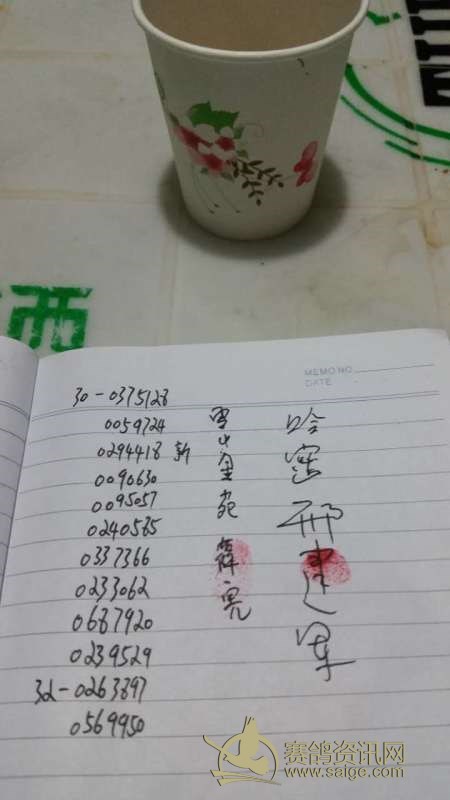 西
MEMO NO.
DATE
30-0375128
0059724
0294418 新
0090630
0095057
0240585
0337366
0233062
0687920
0239529
32-0263897
0569950
雪山星苑 薛亮
哈密 邢建军
赛鸽资讯网
www.saige.com